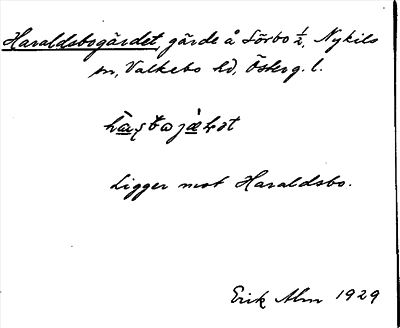 Haraldsbogärdet, gärde å Sörbo ½, Nykils
sn, Valkebo hd, Österg. l.
Ligger mot Haraldsbo.
Erik Alm 1929